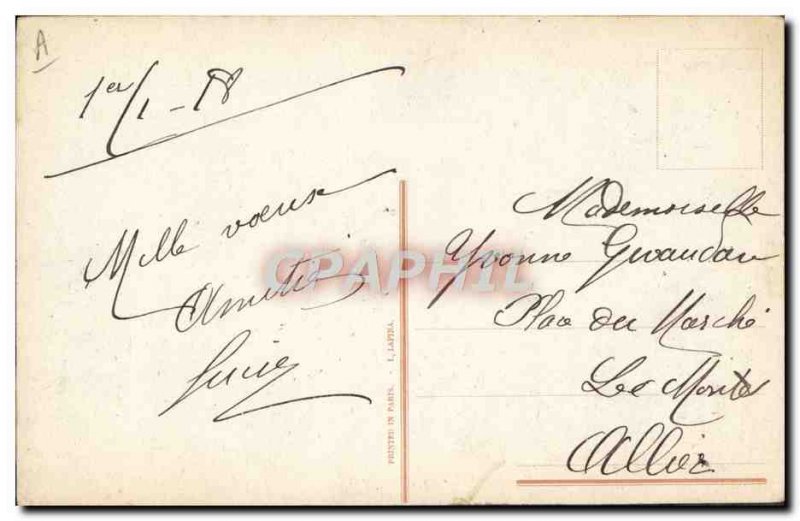 A
1er/1 - 18
Mille voeux
Amitié
Lucie
CPAPHIL
PRINTED IN PARIS. - I. LAPINA.
Mademoiselle
Yvonne
Place du Marché
Le
Allier